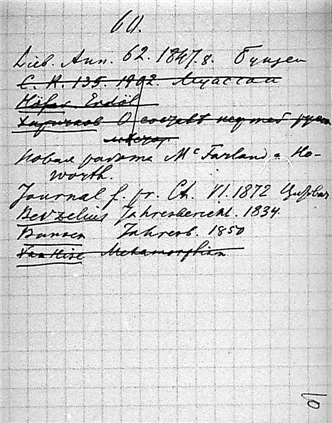 60.
Lieb. Ann. 62. 1847 г. Бунзен
C. R. 135. 1902. Муассан
Höfer Erdöl
Харичков О составе нефтей русск.
Новая работа Mc Farland и Ho-
worth.
Journal f. pr. Ch. VI. 1872
Berzelius Jahresbericht. 1834.
Bunsen Jahresb. 1850
Van Hise Metamorphism